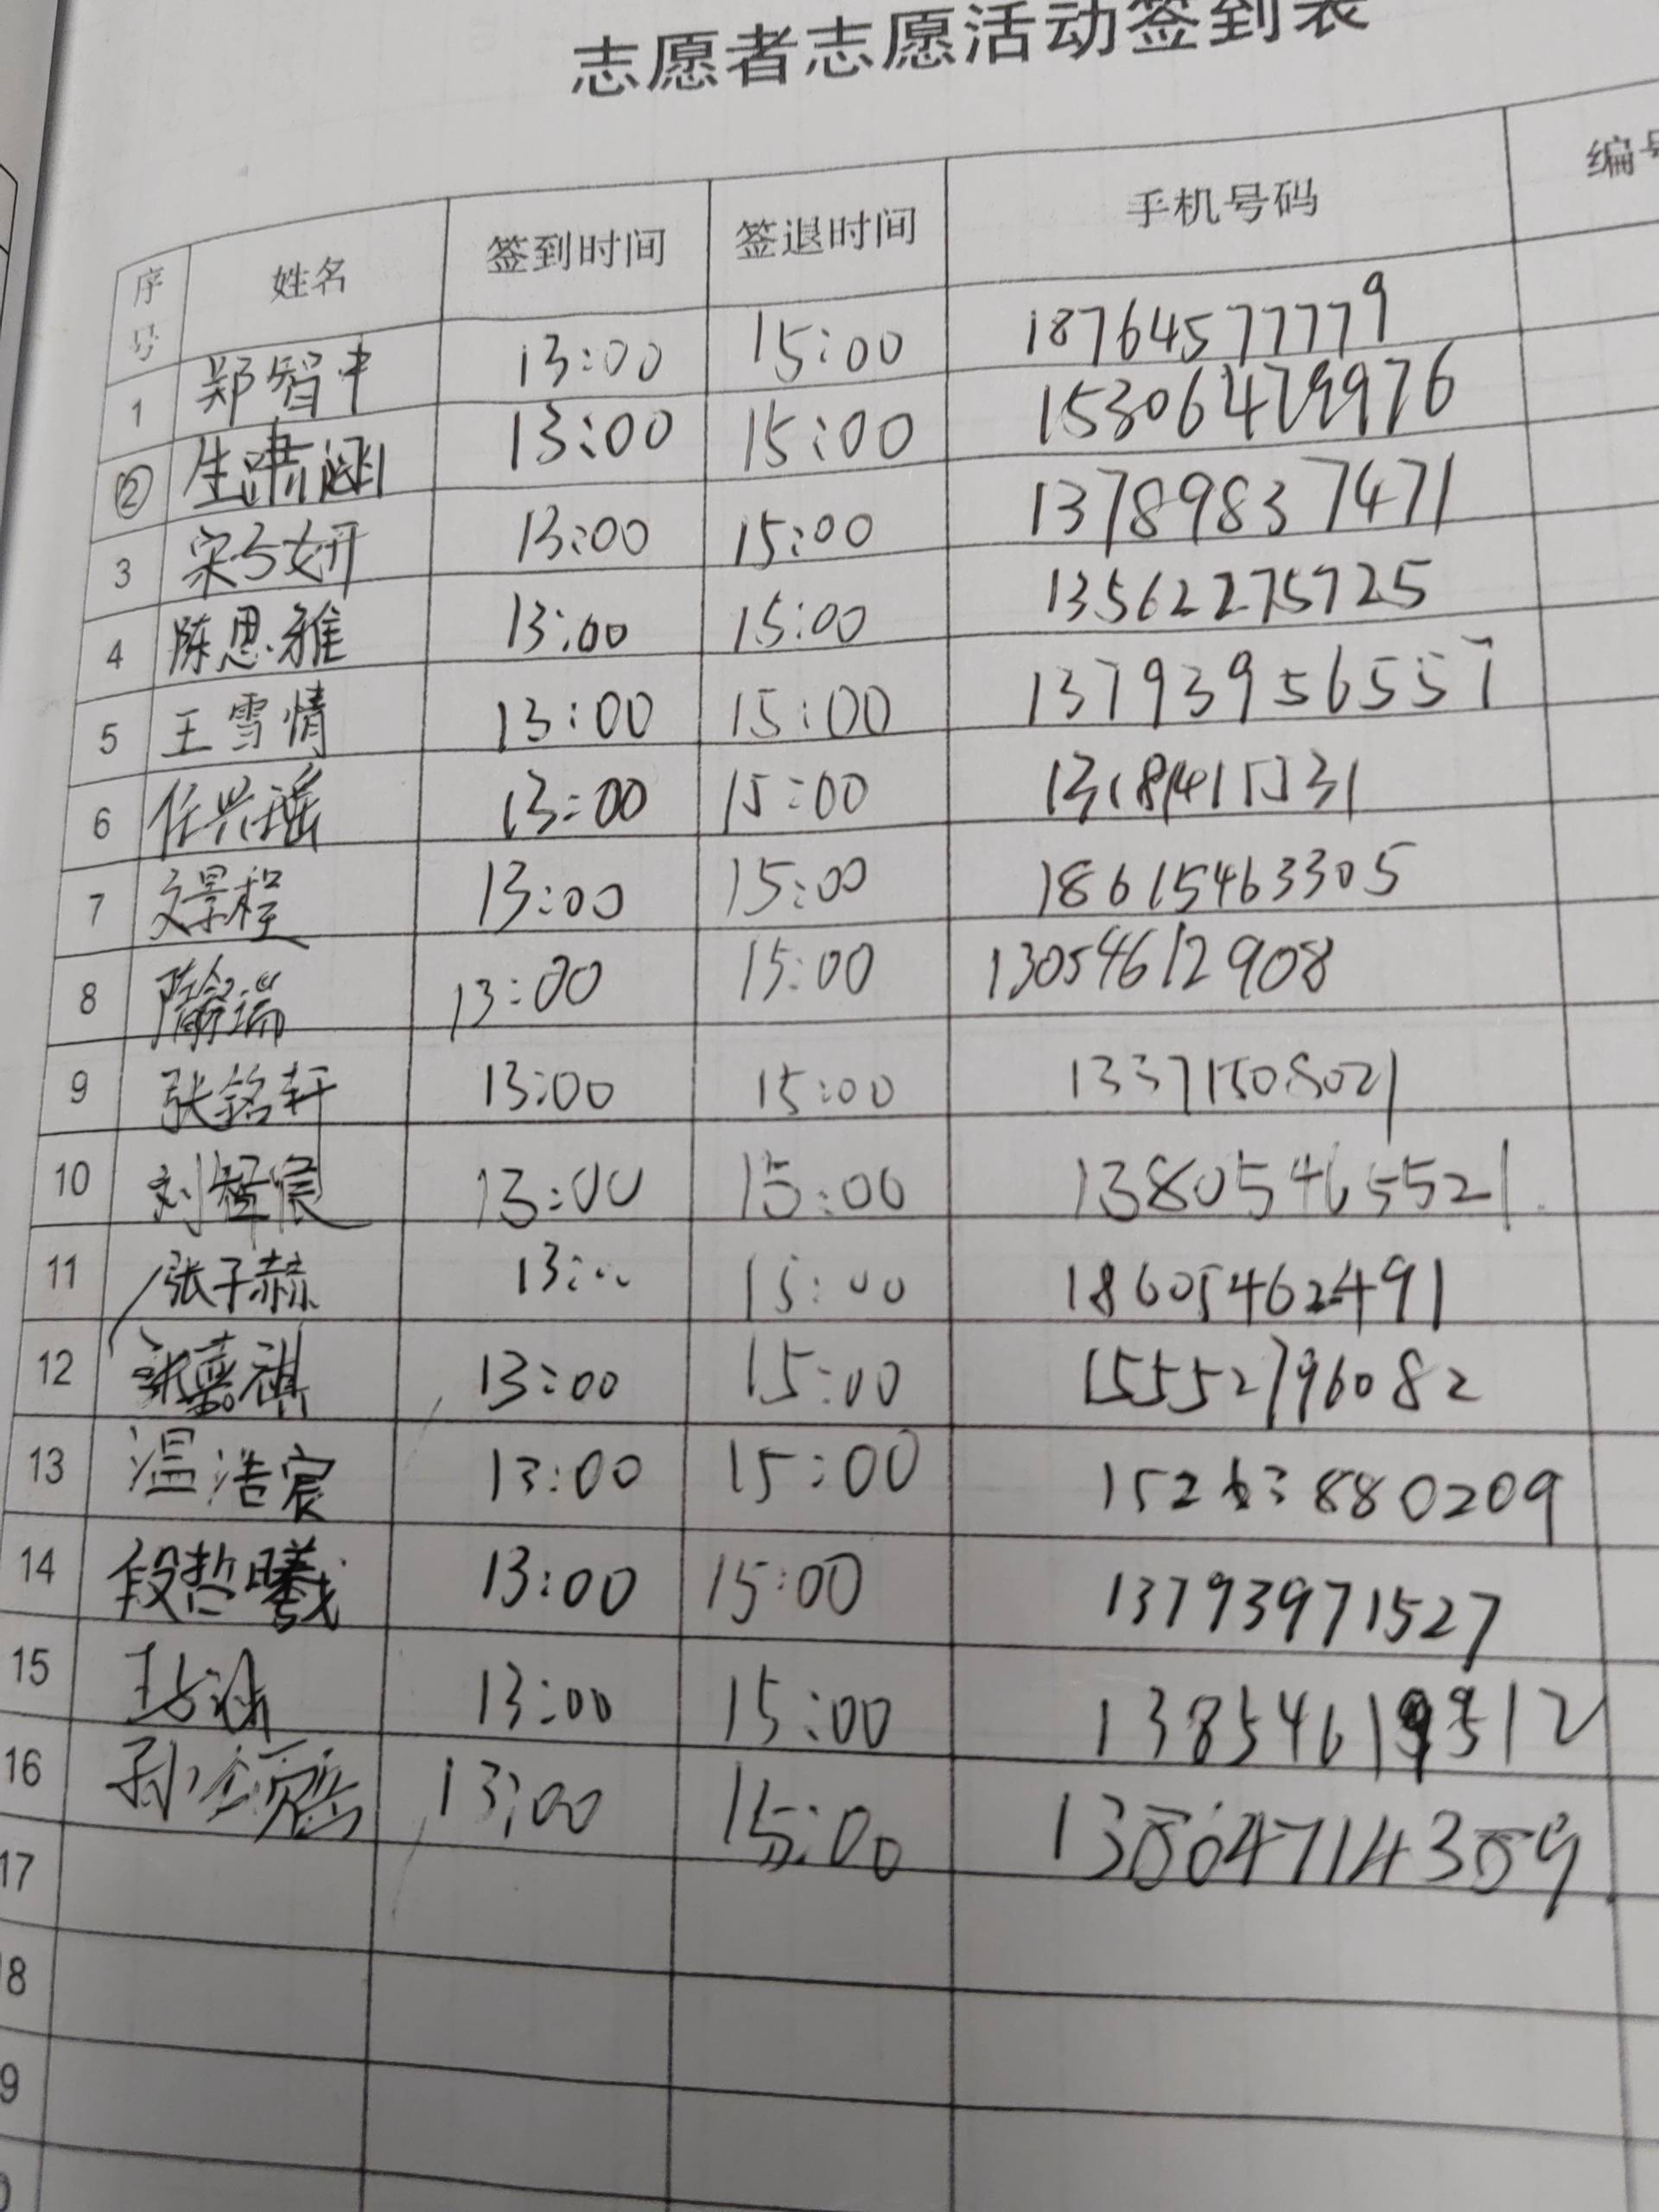 志愿者志愿活动签到表
序号 姓名 签到时间 签退时间 手机号码 编号
1 郑智中 13:00 15:00 18764577779
② 生肃涵 13:00 15:00 15306479976
3 宋兮妍 13:00 15:00 13789837471
4 陈思雅 13:00 15:00 13562275725
5 王雪情 13:00 15:00 13793956557
6 任兴瑶 13:00 15:00
7 文景程 13:00 15:00 18615463305
8 隋瑞 13:00 15:00 13054612908
9 张铭轩 13:00 15:00 13371508021
10 刘宸 13:00 15:00 13805465521
11 张子赫 13:00 15:00 18605462491
12 祺 13:00 15:00 15552796082
13 温浩宸 13:00 15:00 15263880209
14 段哲曦 13:00 15:00 13793971527
15 王 13:00 15:00
16 孙 13:00 15:00
17
18
19